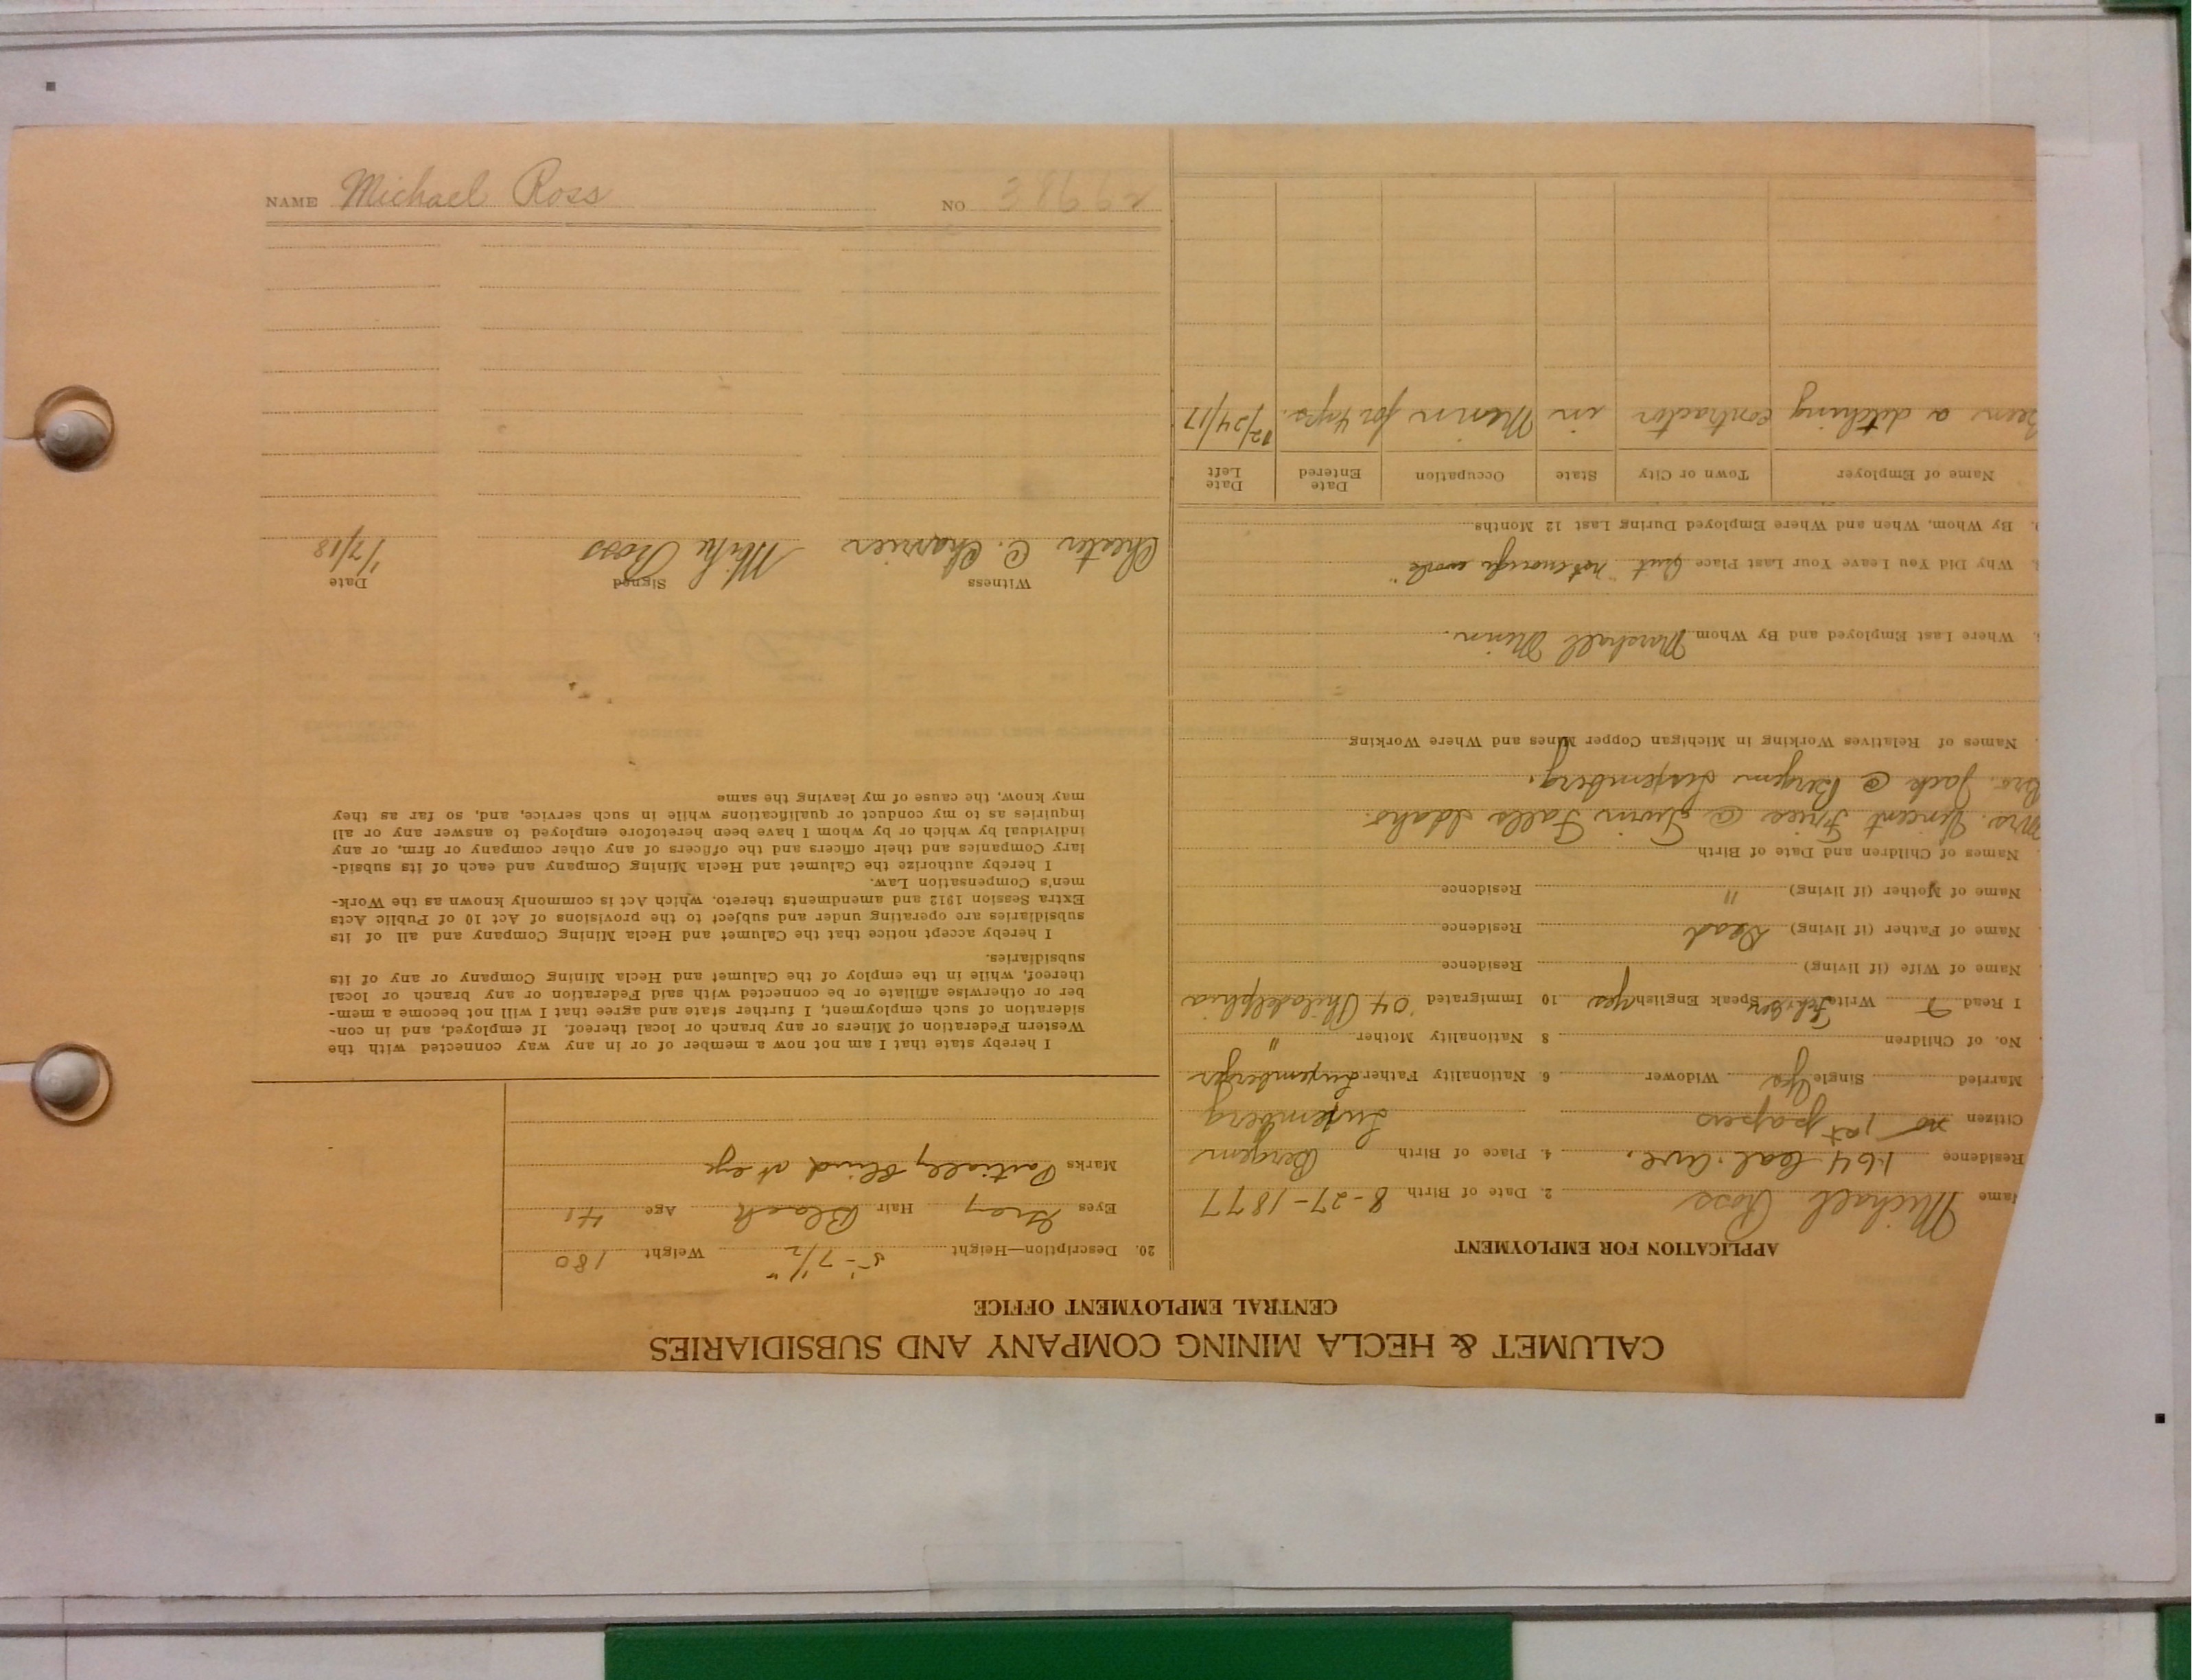 CALUMET & HECLA MINING COMPANY AND SUBSIDIARIES
CENTRAL EMPLOYMENT OFFICE
APPLICATION FOR EMPLOYMENT
Name Michael Ross 2. Date of Birth 8-27-1877
Residence 164 Cal. Ave. 4. Place of Birth Bergem
Citizen no 1st papers Luxemberg
Married Single Yes Widower 6. Nationality Father Luxemberger
No. of Children 8 Nationality Mother "
I Read Write Speak English yes 10 Immigrated '04 Philadelphia
Name of Wife (if living) Residence
Name of Father (if living) Dead Residence
Name of Mother (if living) " Residence
Names of Children and Date of Birth
Mrs. Vincent Fries @ Twin Falls Idaho.
Bro. Jack @ Bergem Luxemberg.
Names of Relatives Working in Michigan Copper Mines and Where Working
Where Last Employed and By Whom Marshall Minn.
Why Did You Leave Your Last Place Quit "not enough work"
By Whom, When and Where Employed During Last 12 Months
Name of Employer Town or City State Occupation Date Entered Date Left
Been a ditching contractor in Minn for 4 yrs. 12/24/17
20. Description—Height 5'-7 1/2" Weight 180
Eyes Gray Hair Black Age 41
Marks Partially blind rt eye
I hereby state that I am not now a member of or in any way connected with the
Western Federation of Miners or any branch or local thereof. If employed, and in con-
sideration of such employment, I further state and agree that I will not become a mem-
ber or otherwise affiliate or be connected with said Federation or any branch or local
thereof, while in the employ of the Calumet and Hecla Mining Company or any of its
subsidiaries.
I hereby accept notice that the Calumet and Hecla Mining Company and all of its
subsidiaries are operating under and subject to the provisions of Act 10 of Public Acts
Extra Session 1912 and amendments thereto, which Act is commonly known as the Work-
men's Compensation Law.
I hereby authorize the Calumet and Hecla Mining Company and each of its subsid-
iary Companies and their officers and the officers of any other company or firm, or any
individual by which or by whom I have been heretofore employed to answer any or all
inquiries as to my conduct or qualifications while in such service, and, so far as they
may know, the cause of my leaving the same
Witness Signed Date
Chester C. Charrier Mike Ross 1/7/18
NAME Michael Ross NO 38662